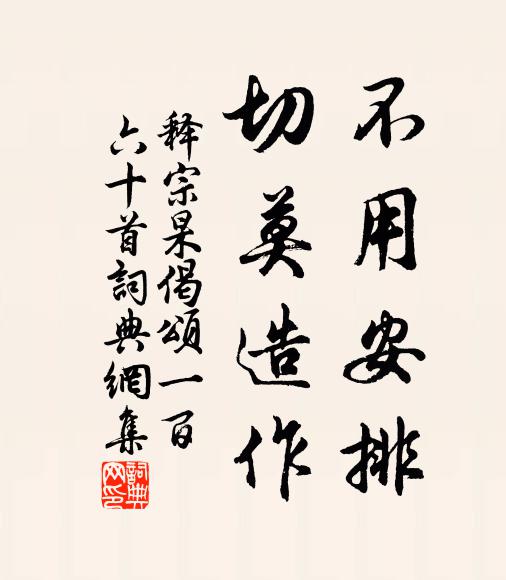 不用安排
切莫造作
释宗杲偈頌一百
六十首詞典網集
詞典
网印